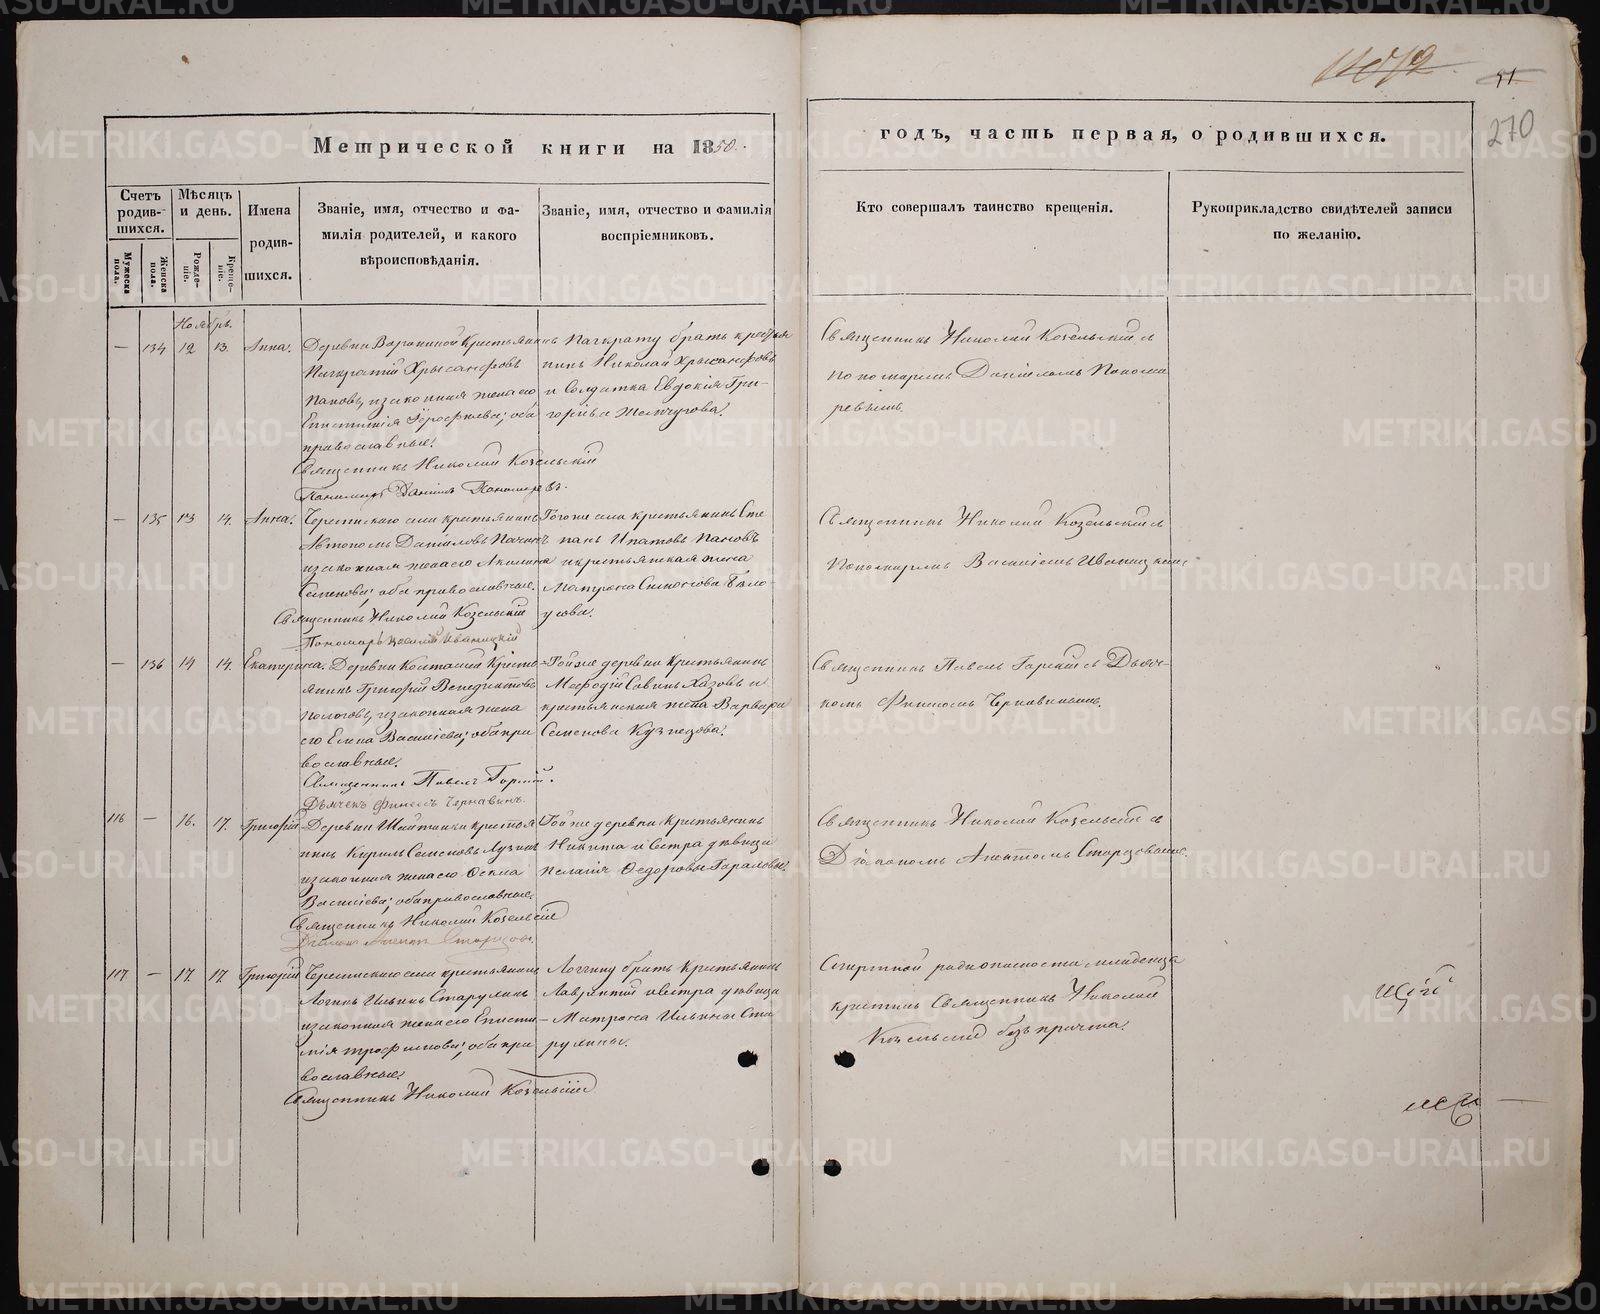 270
Метрической книги на 1850.
годъ, часть первая, о родившихся.
Счетъ родив-шихся.
Мѣсяцъ и день.
Имена родив-шихся.
Званіе, имя, отчество и фа-
милія родителей, и какого
вѣроисповѣданія.
Званіе, имя, отчество и фамилія
воспріемниковъ.
Кто совершалъ таинство крещенія.
Рукоприкладство свидѣтелей записи
по желанію.
Мужеска пола.
Женска пола.
Рожде-ніе.
Креще-ніе.
Ноябрь.
— 134 12 13. Анна.
Деревни Ворониной Крестьянинъ
Панкратій Хрысанфовъ
Пановъ, и законная жена его
православные.
Священникъ Николай Козельскій
Пономарь Даніилъ Пономаревъ.
Панкрату братъ крестья
нинъ Николай Хрысанфовъ
и Солдатка Евдокія Гри-
горьева Жемчугова.
Священникъ Николай Козельскій съ
пономаремъ Даніиломъ Понома
ревымъ.
— 135 13 14. Анна.
села крестьянинъ
Автономъ Даниловъ
и законная жена его Акилина
Семенова; оба православные.
Священникъ Николай Козельскій
Пономарь Василій Иваницкій
Того же села крестьянинъ Сте
панъ Ипатовъ Пановъ
и крестьянская жена
Матрона Симонова Бѣло
усова.
Священникъ Николай Козельскій съ
Пономаремъ Василіемъ Иваницкимъ
— 136 14 14. Екатерина.
Деревни Крестья
янинъ Григорій Венедиктовъ
и законная жена
его Елена Василіева; оба пра
вославные.
Священникъ Павелъ Горный.
Дьячекъ Финеесъ Чернавинъ.
Той же деревни Крестьянинъ
Меѳодій Савинъ Хазовъ и
крестьянская жена Варвара
Семенова Кузнецова.
Священникъ Павелъ съ Дьяч-
комъ Финеесомъ Чернавинымъ.
116 — 16. 17. Григорій
Деревни Шайтанки крестья
нинъ Кирилъ Семеновъ Лузинъ
и законная жена его
Василіева; оба православные.
Священникъ Николай Козельскій
Той же деревни Крестьянинъ
Никита и сестра дѣвица
Пелагія Ѳедоровы
Священникъ Николай Козельскій съ
Діакономъ Старцовымъ.
117 — 17. 17. Григорій
села крестьянинъ
Логинъ Ильинъ Старулинъ
и законная жена его Еписти
мія Трофимова; оба пра
вославные.
Священникъ Николай Козельскій
Логгину братъ Крестьянинъ
Лаврентій и сестра дѣвица
Матрона Ильины Ста
рулины.
младенца
крестилъ Священникъ Николай
Козельскій безъ причта.